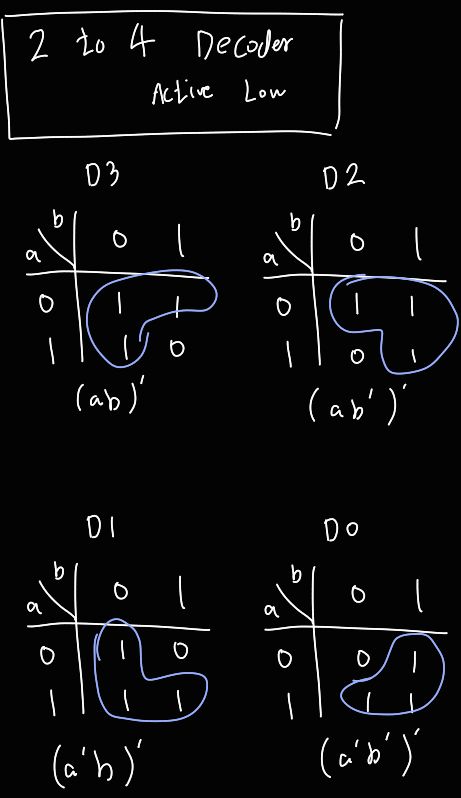 2 to 4 Decoder
Active Low
D3
b
a
0 1
0 1 1
1 1 0
(ab)'
D2
b
a
0 1
0 1 1
1 0 1
(ab')'
D1
b
a
0 1
0 1 0
1 1 1
(a'b)'
D0
b
a
0 1
0 0 1
1 1 1
(a'b')'